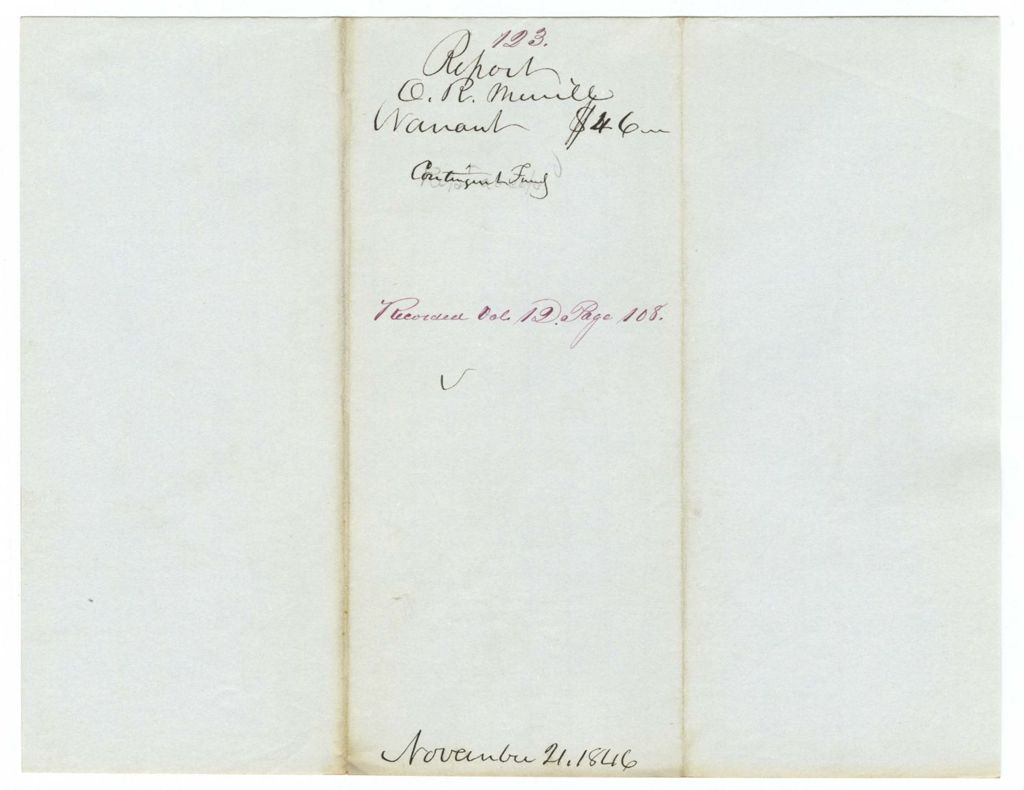 123.
Report
O. R. Merrill
Warrant $46
Contingent Fund
Recorded Vol. 12. Page 108.
November 21, 1846